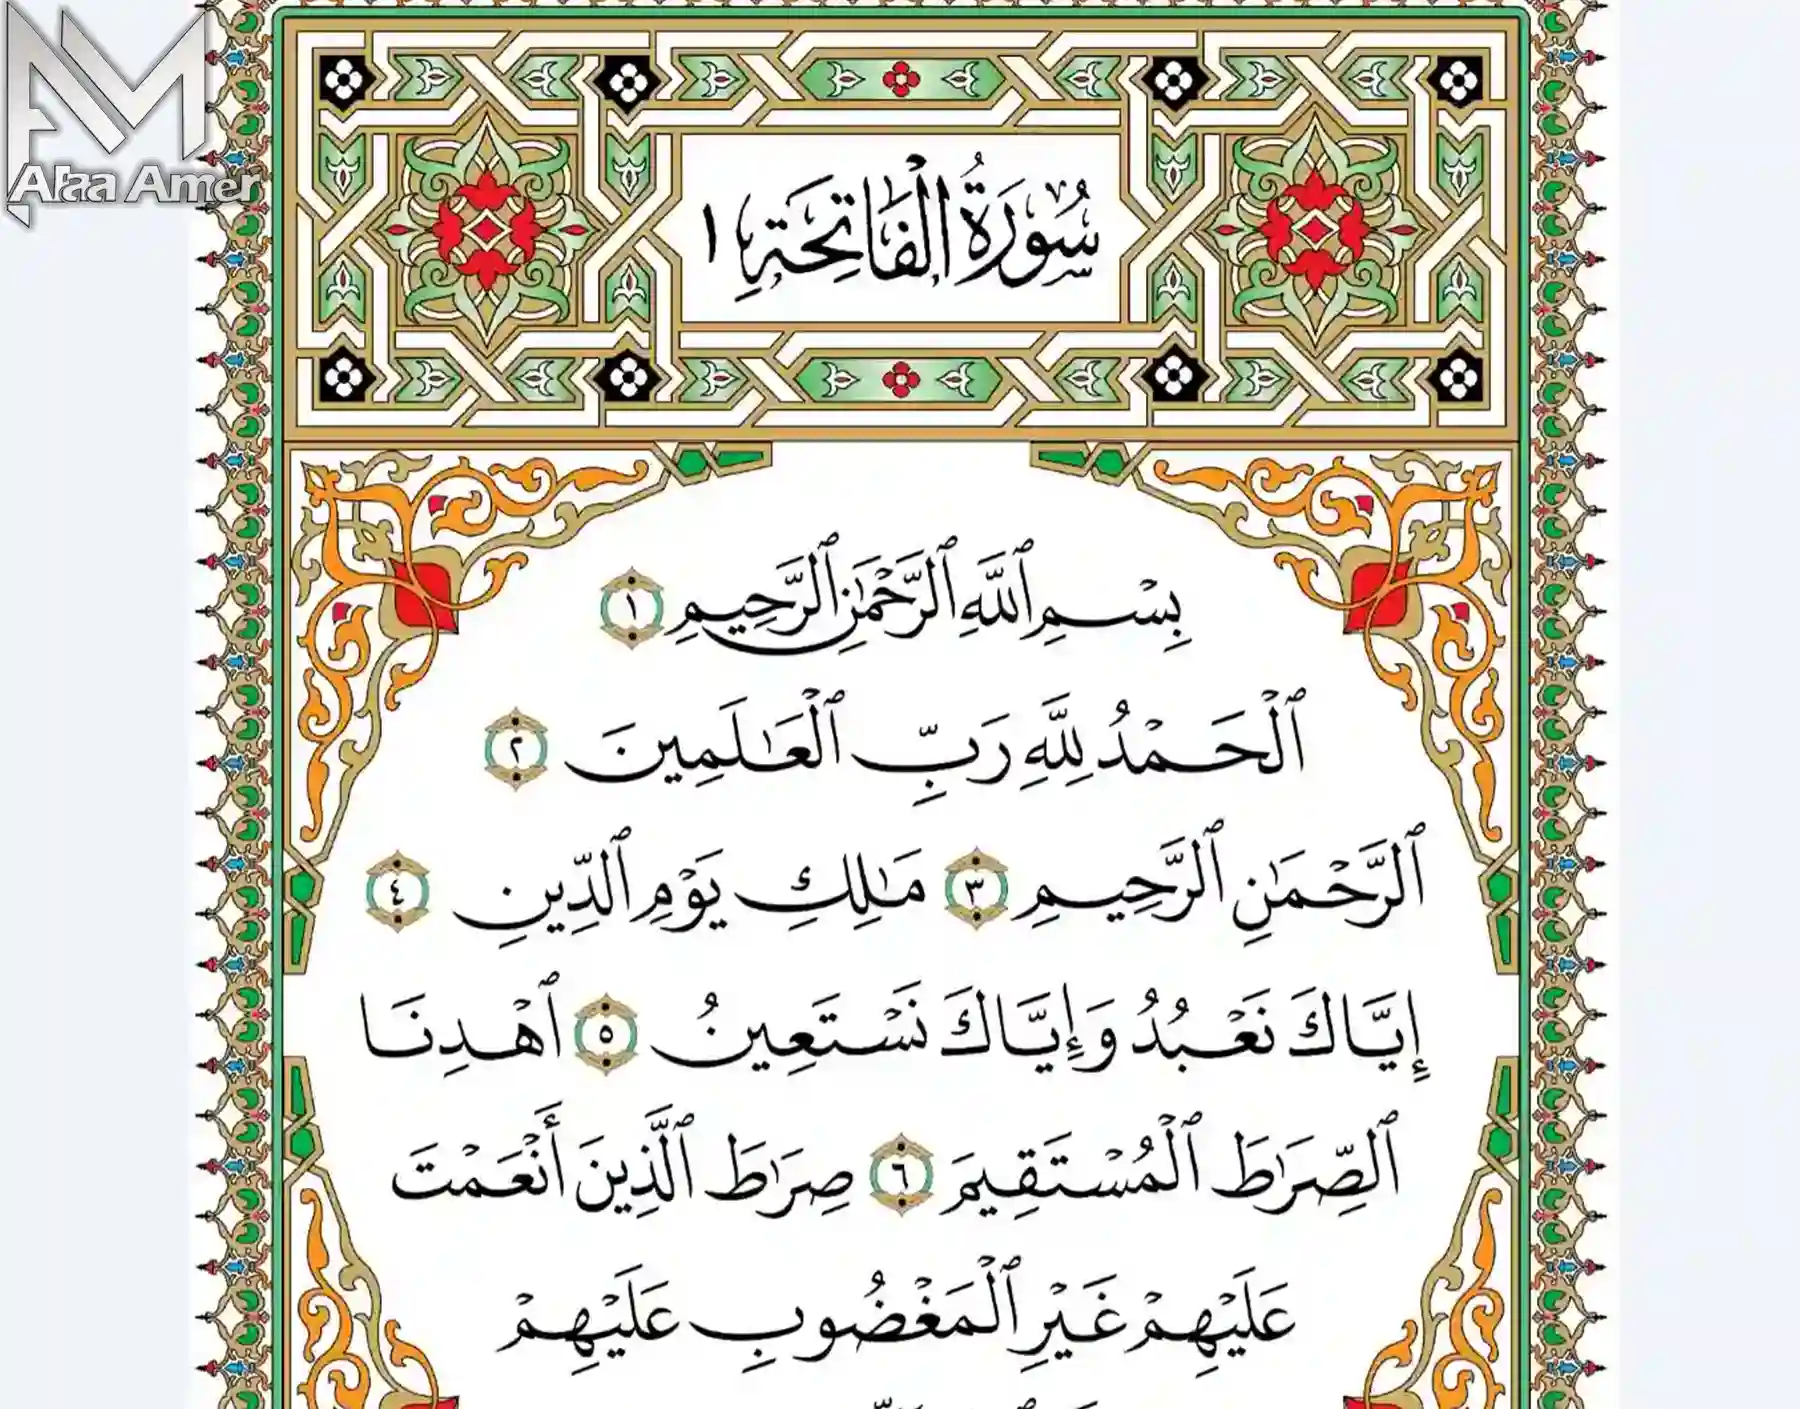 Alaa Amer
سُورَةُ الْفَاتِحَةِ ١
بِسْمِ ٱللَّهِ ٱلرَّحْمَٰنِ ٱلرَّحِيمِ ١
ٱلْحَمْدُ لِلَّهِ رَبِّ ٱلْعَٰلَمِينَ ٢
ٱلرَّحْمَٰنِ ٱلرَّحِيمِ ٣ مَٰلِكِ يَوْمِ ٱلدِّينِ ٤
إِيَّاكَ نَعْبُدُ وَإِيَّاكَ نَسْتَعِينُ ٥ ٱهْدِنَا
ٱلصِّرَٰطَ ٱلْمُسْتَقِيمَ ٦ صِرَٰطَ ٱلَّذِينَ أَنْعَمْتَ
عَلَيْهِمْ غَيْرِ ٱلْمَغْضُوبِ عَلَيْهِمْ